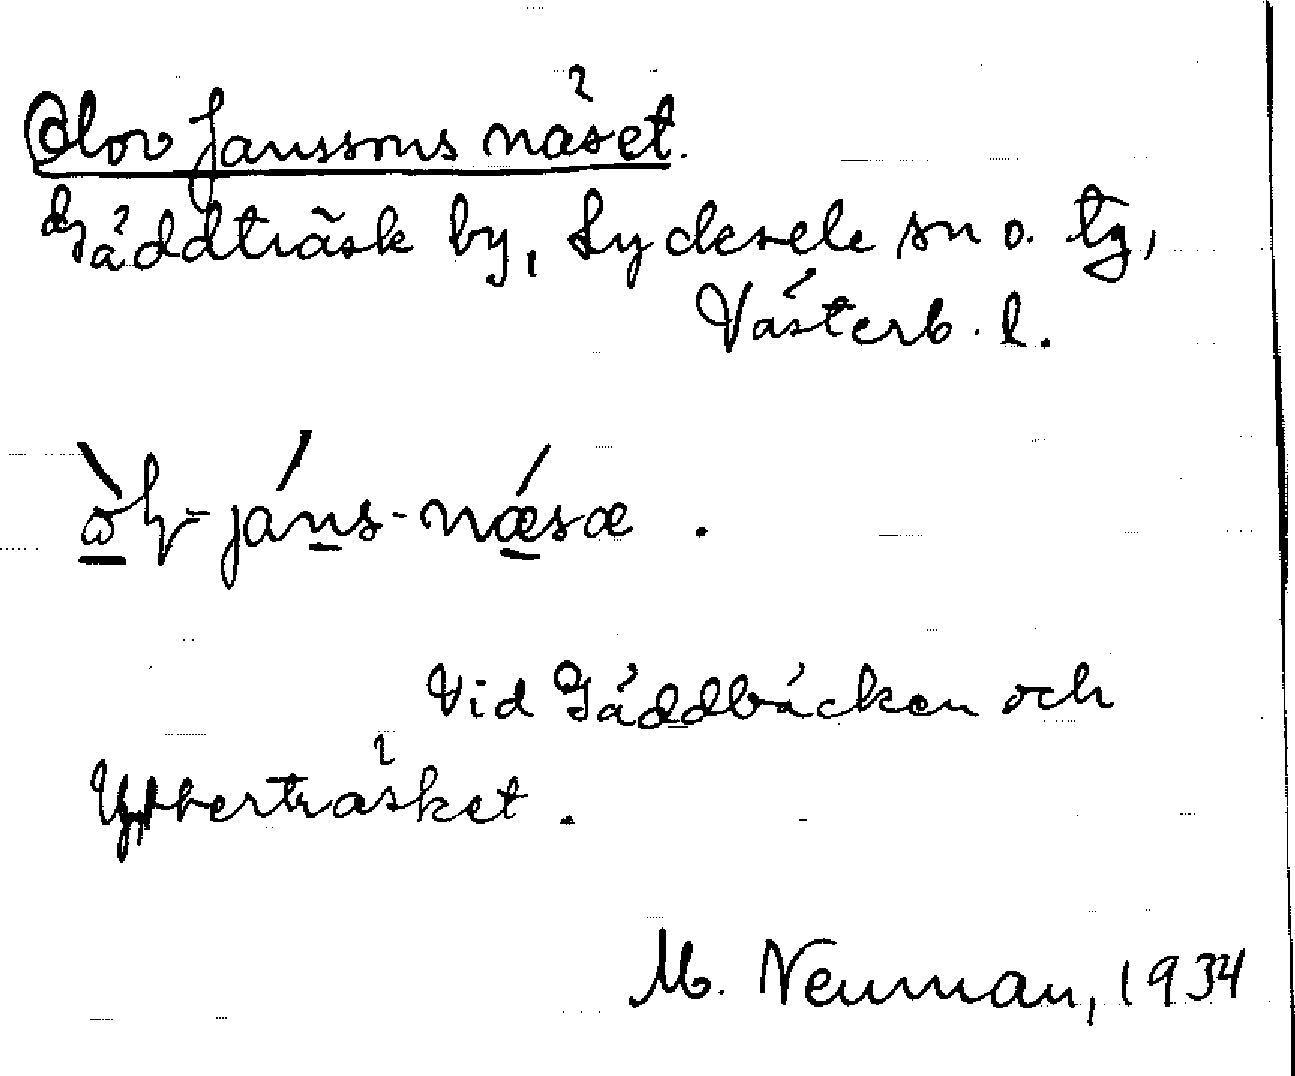 Olov Janssons näset.
Gäddträsk by, Lycksele sn o. tg,
Västerb. l.
jáns-næsæ.
Vid Gäddbäcken och
Ytterträsket.
M. Neuman, 1934